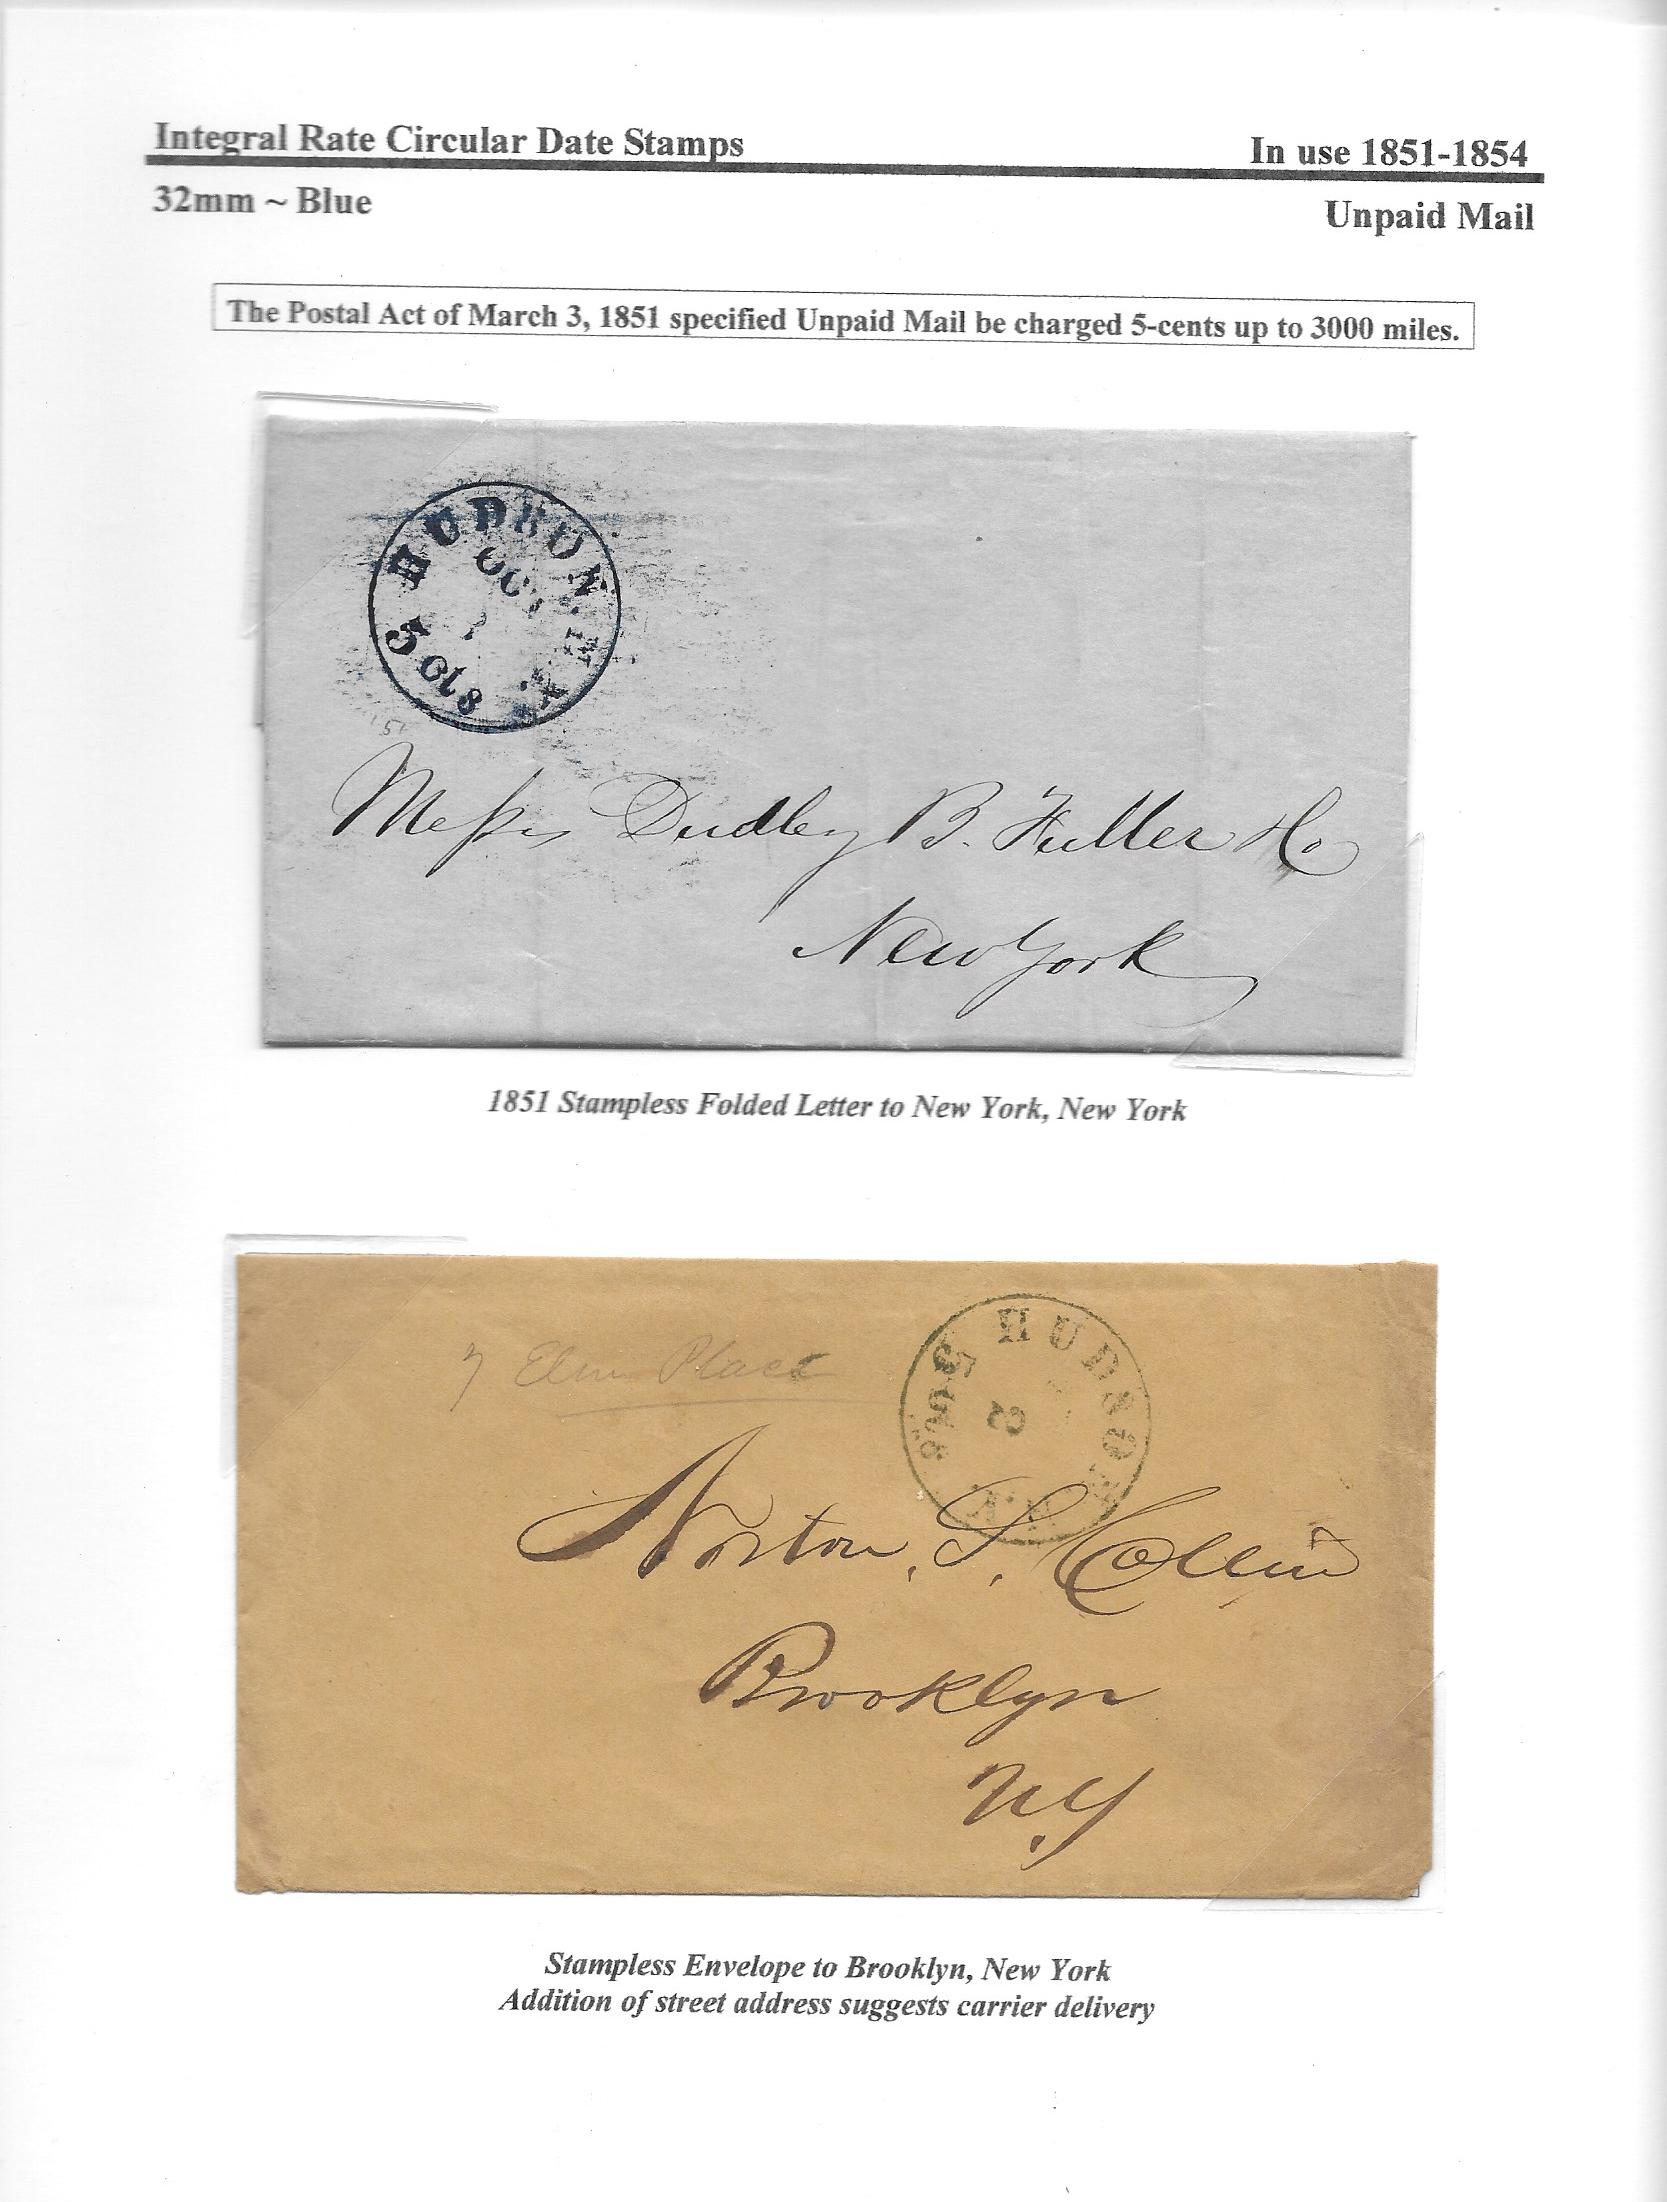 Integral Rate Circular Date Stamps
In use 1851-1854
32mm ~ Blue
Unpaid Mail
The Postal Act of March 3, 1851 specified Unpaid Mail be charged 5-cents up to 3000 miles.
HUDSON N.Y.
OCT
5 cts
'51
Messrs Dudley B. Fuller & Co
New York
1851 Stampless Folded Letter to New York, New York
HUDSON N.Y.
5 cts
2
7 Elm Place
Norton, S. Collin
Brooklyn
N.Y
Stampless Envelope to Brooklyn, New York
Addition of street address suggests carrier delivery